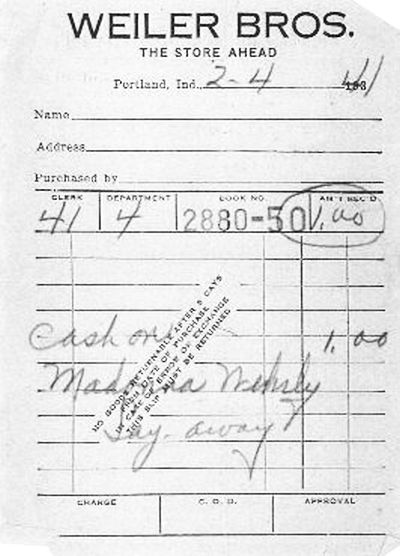 WEILER BROS.
THE STORE AHEAD
Portland, Ind. 2-4 193 41
Name
Address
Purchased by
CLERK DEPARTMENT BOOK NO. AM'T REC'D
41 4 2880-50 1.00
NO GOODS RETURNABLE AFTER 5 DAYS
FROM DATE OF PURCHASE
IN CASE OF ERROR OR EXCHANGE
THIS SLIP MUST BE RETURNED
Cash on 1.00
Madonna Wehrly
Lay-away
CHARGE C. O. D. APPROVAL